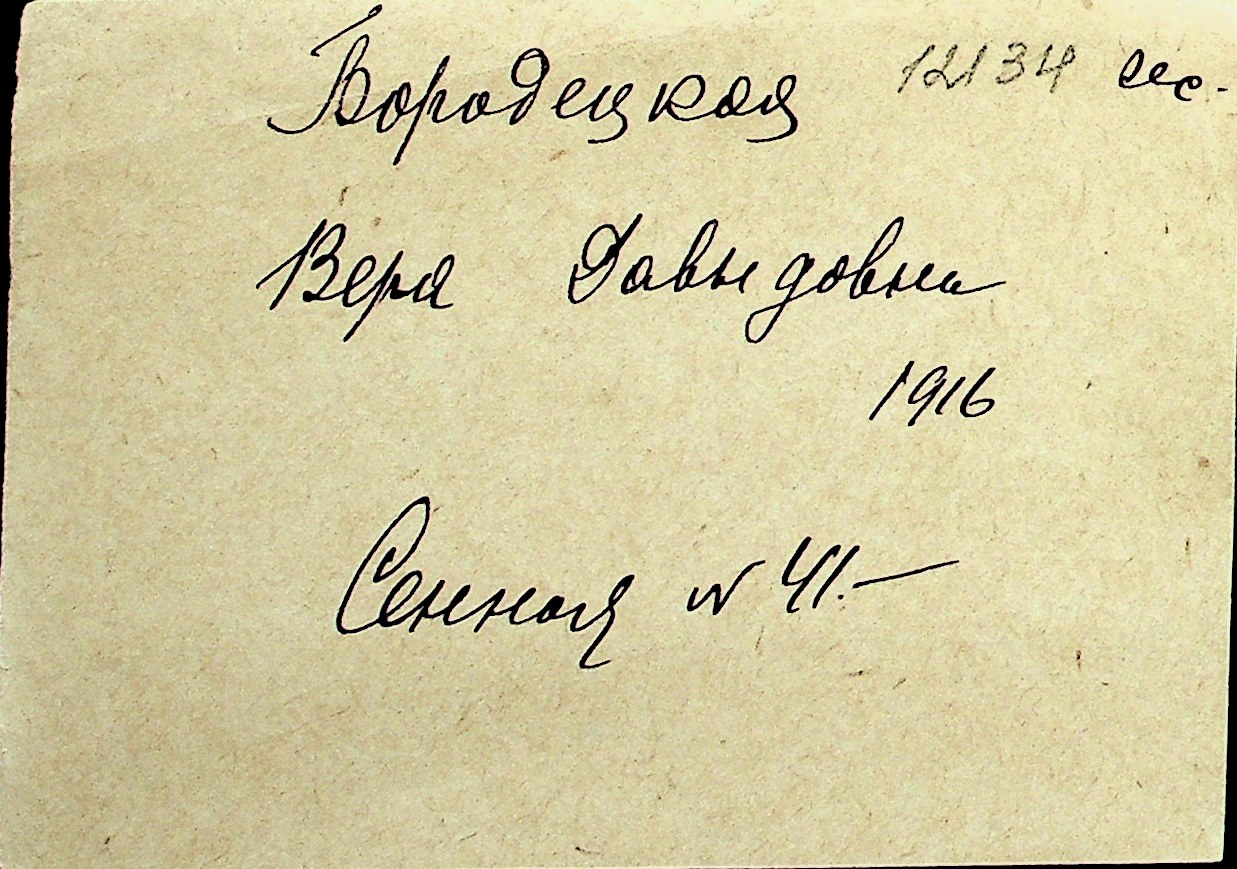 Бородецкая 12134 сес.
Вера Давыдовна
1916
Сенная № 41.—